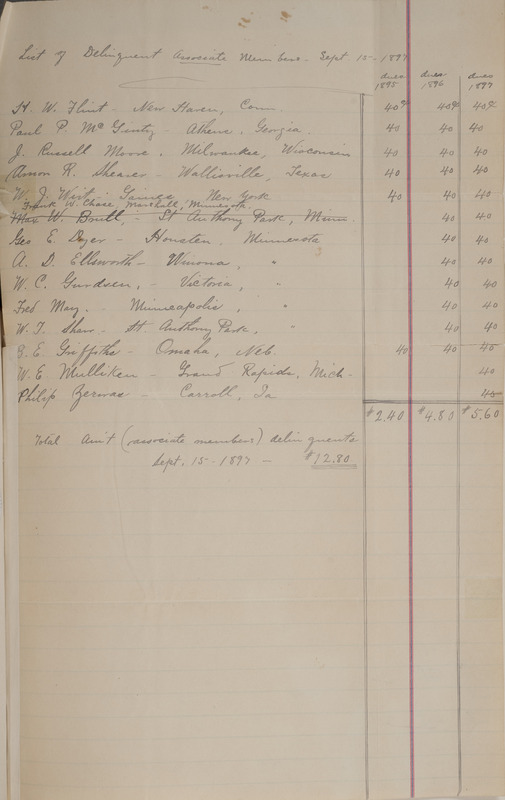 List of Delinquent Associate Members - Sept 15 - 1897
dues 1895 dues 1896 dues 1897
H. W. Flint - New Haven, Conn. 40¢ 40¢ 40¢
Paul P. McGinty Athens, Georgia. 40 40 40
J. Russell Moore, Milwaukee, Wisconsin 40 40 40
R. Shearer - Wallisville, Texas 40 40 40
W. J. Wirt - Gaines, New York 40 40 40
Frank W. Chase, Marshall, Minnesota
Max W. Brull, - St Anthony Park, Minn. 40 40
Geo E. Dyer - Houston, Minnesota 40 40
A. D. Ellsworth - Winona, " 40 40
W. C. - Victoria, " 40 40
Fred May, - Minneapolis, " 40 40
W. T. Shaw - St Anthony Park, " 40 40
E. Griffiths - Omaha, Neb. 40 40 40
W. E. Mulliken - Grand Rapids, Mich - 40
Philip - Carroll, Ia 40
$2.40 $4.80 $5.60
Total Am't (associate members) delinquents
Sept. 15 - 1897 - $12.80